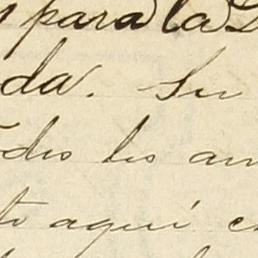 para la
da. Su
dos los am
to aquí e